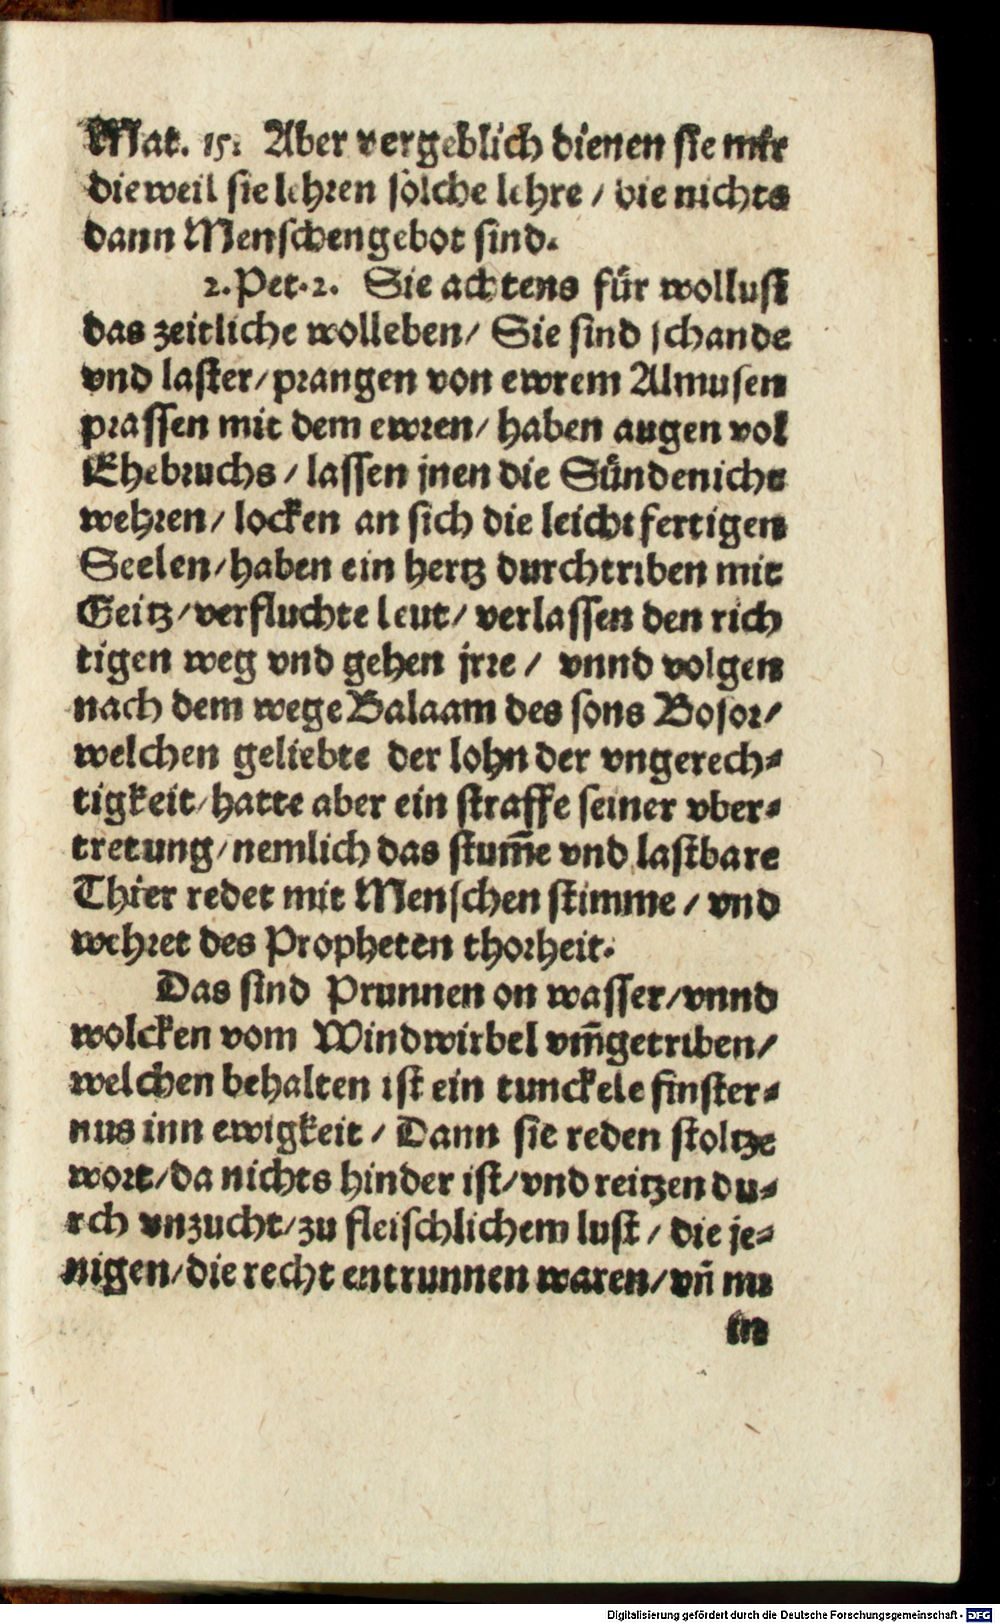 Mat. 15. Aber vergeblich dienen sie mir
dieweil sie lehren solche lehre / die nichts
dann Menschengebot sind.
2. Pet. 2. Sie achtens für wollust
das zeitliche wolleben / Sie sind schande
vnd laster / prangen von ewrem Almusen
prassen mit dem ewren / haben augen vol
Ehebruchs / lassen jnen die Sünde nicht
wehren / locken an sich die leichtfertigen
Seelen / haben ein hertz durchtriben mit
Geitz / verfluchte leut / verlassen den rich
tigen weg vnd gehen jrre / vnnd volgen
nach dem wege Balaam des sons Bosor /
welchen geliebte der lohn der vngerech-
tigkeit / hatte aber ein straffe seiner vber-
tretung / nemlich das stum̄e vnd lastbare
Thier redet mit Menschen stimme / vnd
wehret des Propheten thorheit.
Das sind Prunnen on wasser / vnnd
wolcken vom Windwirbel vm̄getriben /
welchen behalten ist ein tunckele finster-
nus inn ewigkeit / Dann sie reden stoltze
wort / da nichts hinder ist / vnd reitzen du-
rch vnzucht / zu fleischlichem lust / die je-
nigen / die recht entrunnen waren / vn̄ nu
im
Digitalisierung gefördert durch die Deutsche Forschungsgemeinschaft - DFG